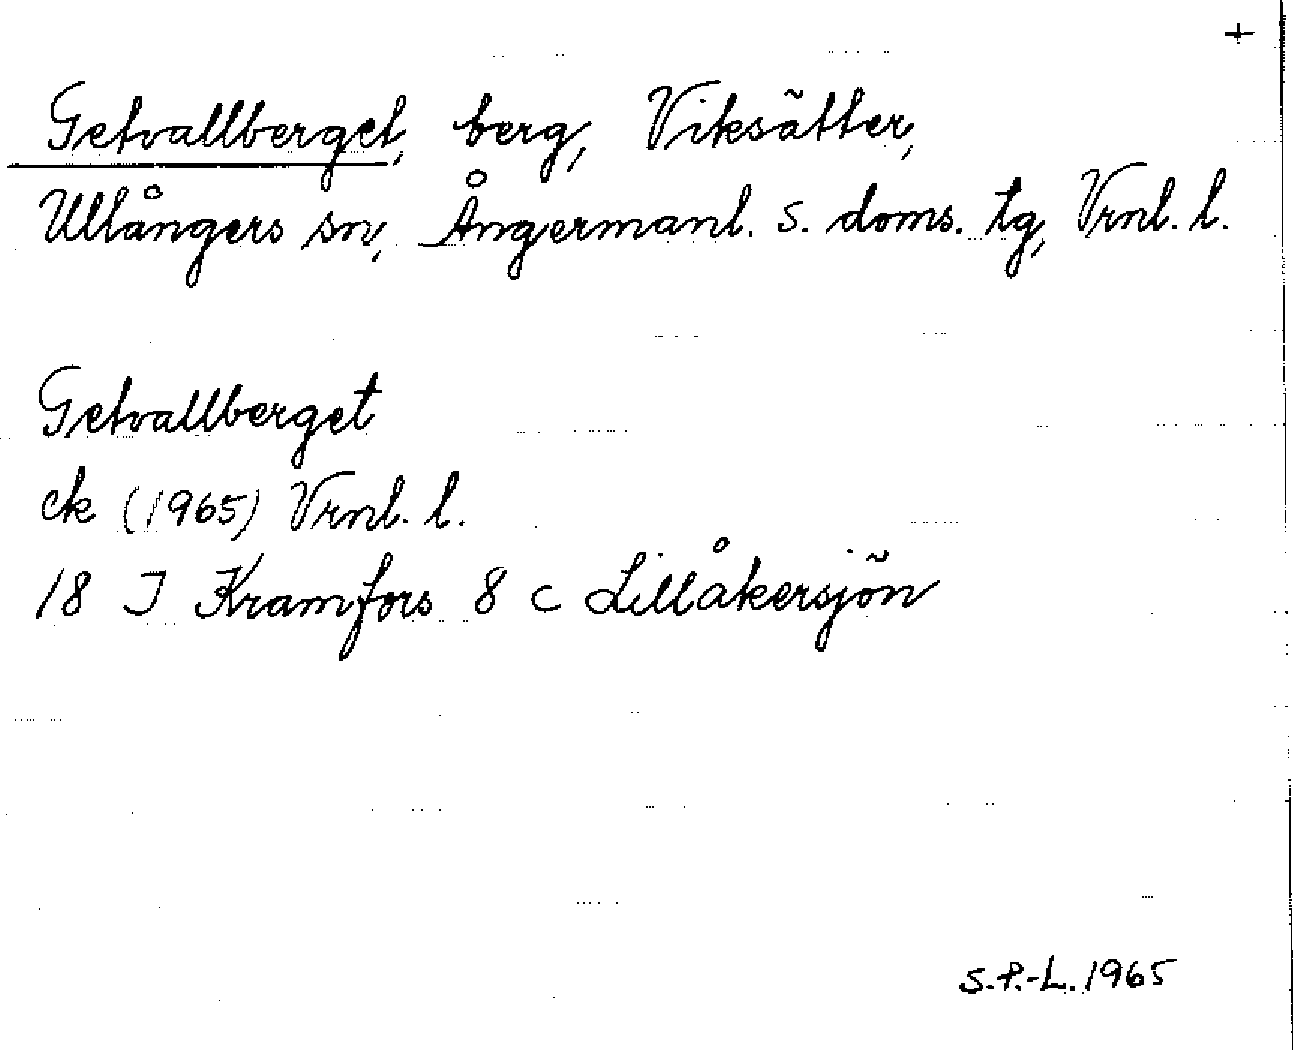 +
Getvallberget, berg, Viksätter,
Ullångers sn, Ångermanl. s. doms. tg, Vrnl. l.
Getvallberget
ek (1965) Vrnl. l.
18 J Kramfors 8 c Lillåkersjön
S.P.-L. 1965